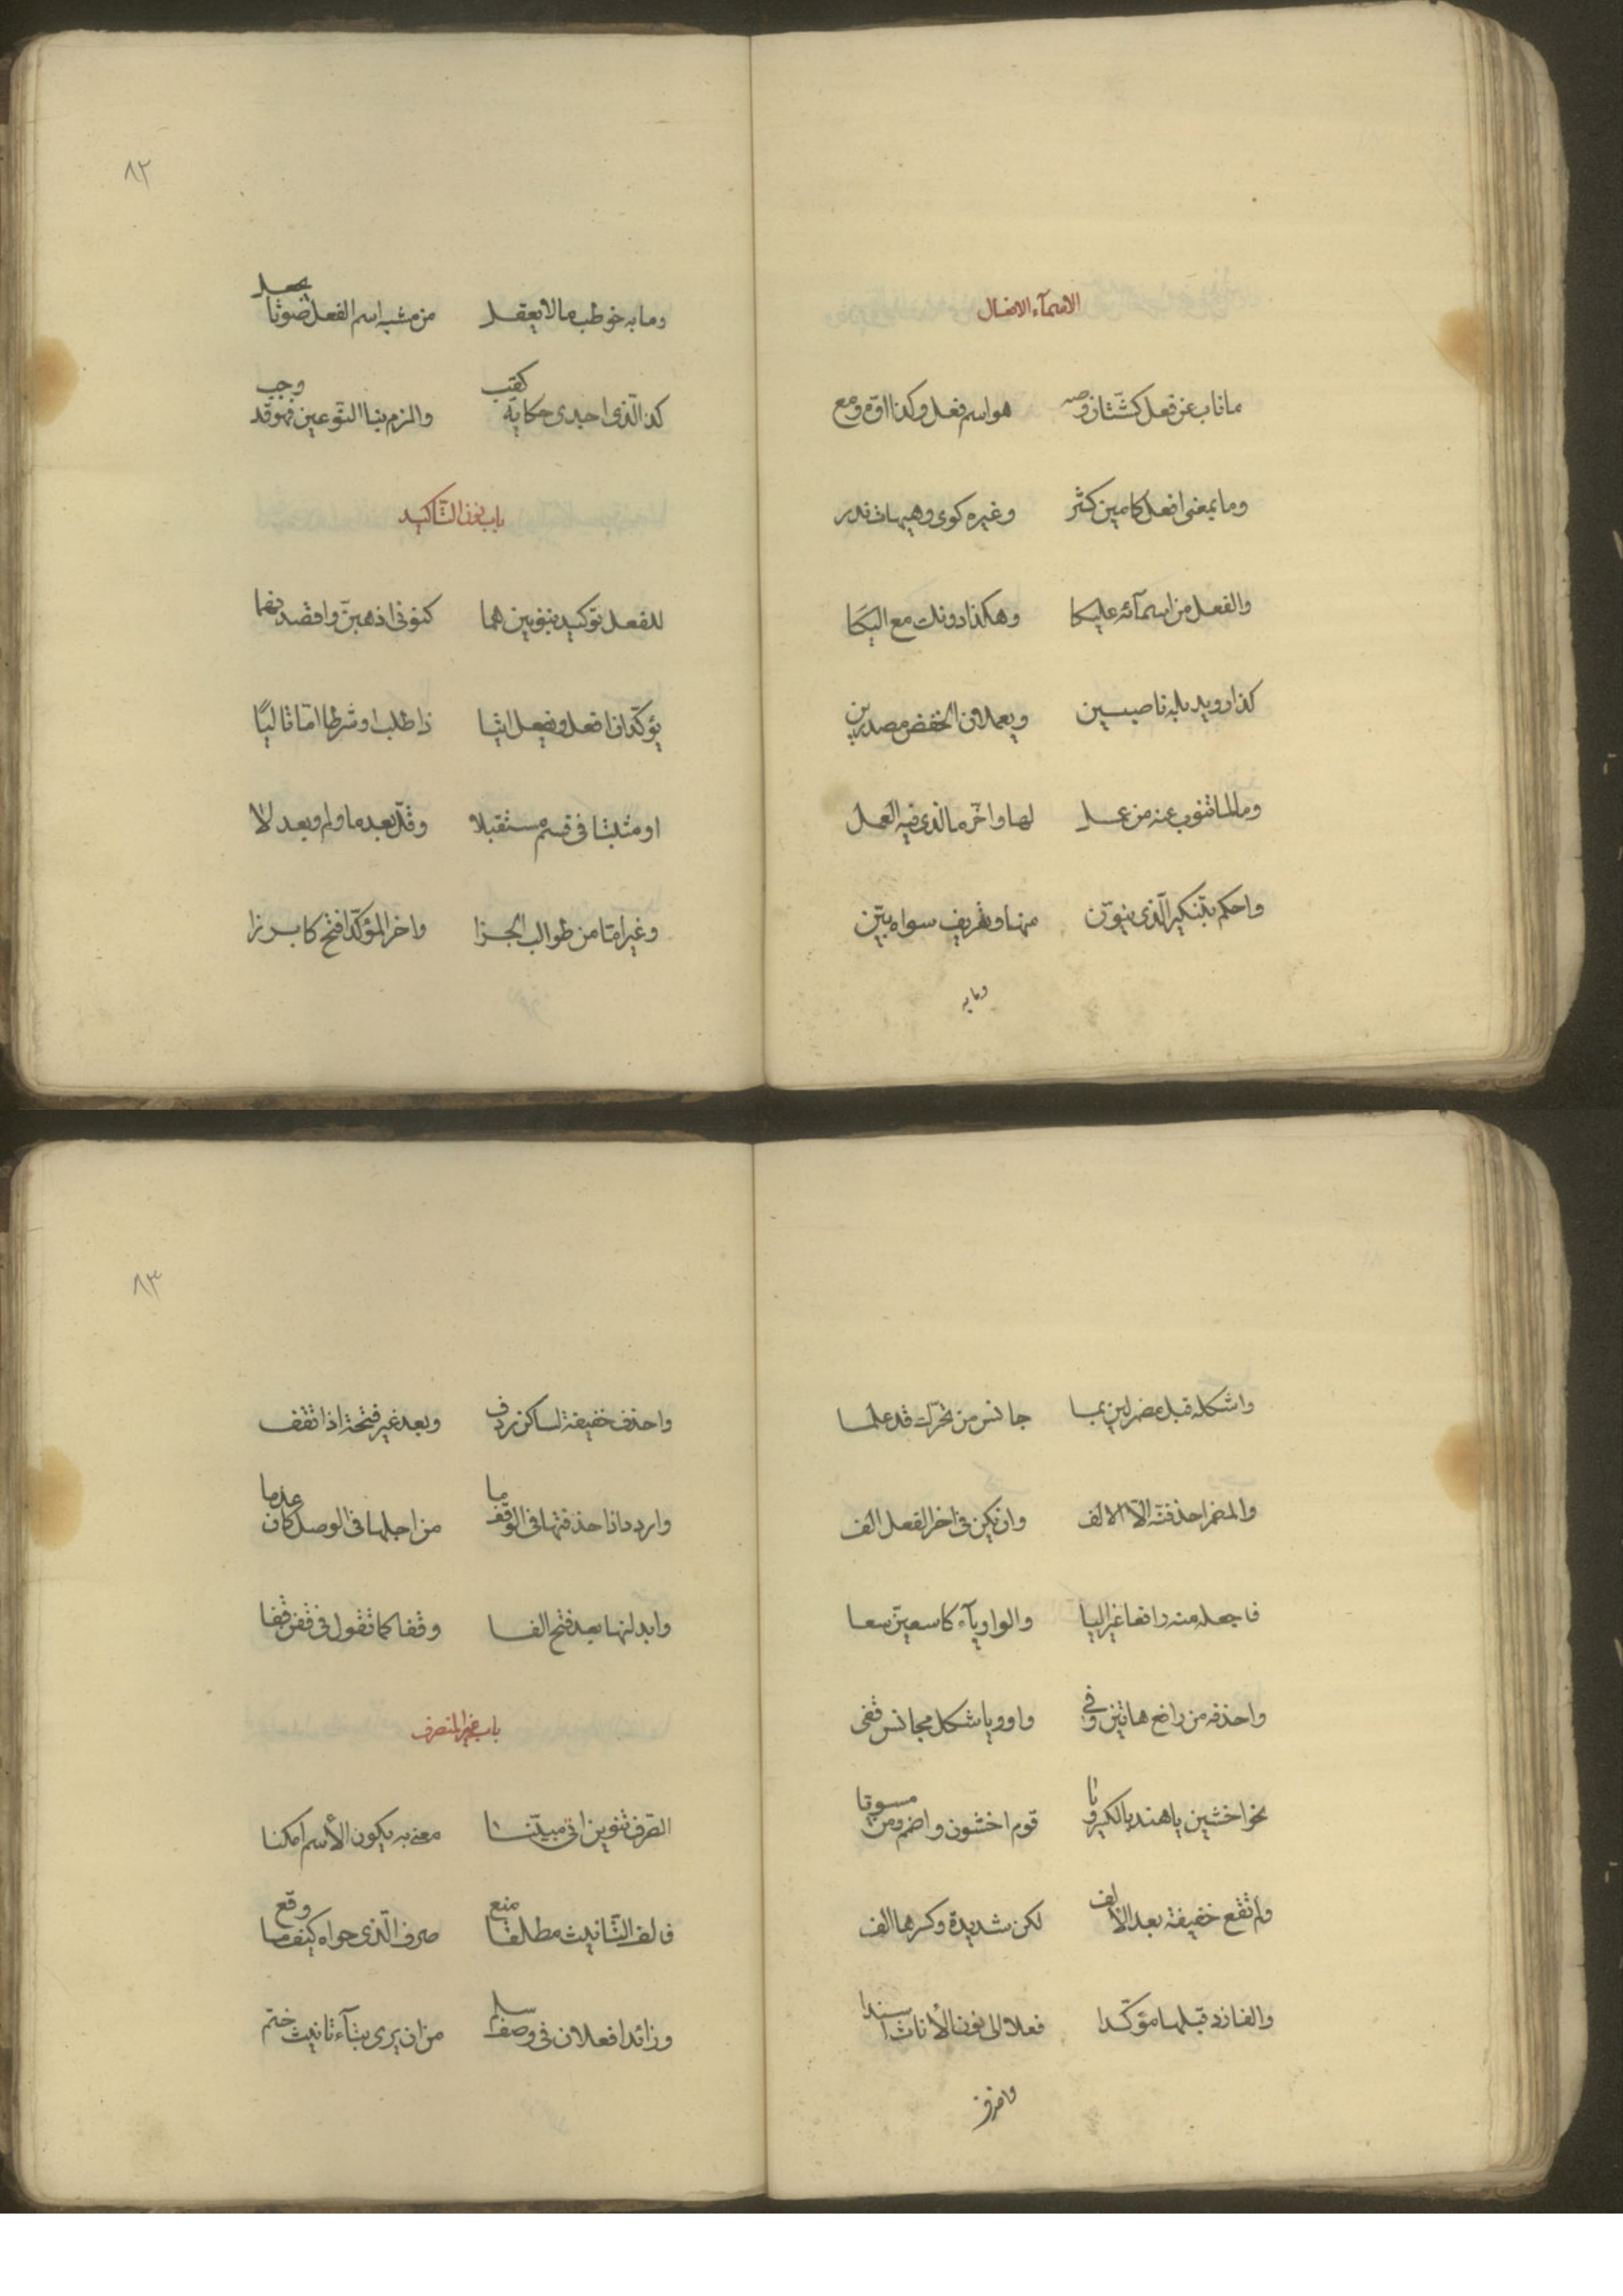 الاسمآء الافعال
ما ناب عن فعل كشتّان وصه هو اسم فعل وكذا اوّه ومه
وما بمعنى افعل كامين كثر وغيره كوى وهيهات ندر
والفعل من اسمآئه عليكا وهكذا دونك مع اليكا
كذا رويد بله ناصبين ويعملان الخفض مصدرين
وما لما تنوب عنه من عمل لها واخّر ما الذى فيه العمل
واحكم بتنكير الّذى ينوّن منها وتعريف سواه بيّن
وما به
٨٢
وما به خوطب ما لا يعقل من مشبه اسم الفعل صوتا يجعل
كذا الّذى اجدى حكاية كقب والزم بنا النّوعين فهو قد وجب
باب نون التّاكيد
للفعل توكيد بنونين هما كنونى اذهبنّ واقصدنهما
يؤكّدان افعل ويفعل اتيا ذا طلب او شرطا امّا تاليًا
او مثبتا فى قسم مستقبلا وقلّ بعد ما ولم وبعد لا
وغير امّا من طوالب الجزا واخر المؤكّد افتح كابرزا
واشكله قبل مضمر لين بما جانس من تحرّك قد علما
والمضمر احذفنّه الّا الالف وان يكن فى اخر الفعل الف
فاجعله منه رافعا غير اليا والواو يآء كاسعينّ سعيا
واحذفه من رافع هاتين وفى واو ويا شكل مجانس قفى
نحو اخشين يا هند بالكسر ويا قوم اخشون واضمم وقس مسويا
ولم تقع خفيفة بعد الالف لكن شديدة وكسرها الف
والفا زد قبلها مؤكّدا فعلا الى نون الأناث اسندا
واحذف
٨٣
واحذف خفيفة لساكن ردف وبعد غير فتحة اذا تقف
واردد اذا حذفتها فى الوقف ما من اجلها فى الوصل كان عدما
وابدلنها بعد فتح الفا وقفا كما تقول فى قفن قفا
باب غير المنصرف
الصّرف تنوين اتى مبيّنا معنى به يكون الأسم امكنا
فالف التّانيث مطلقا منع صرف الّذى حواه كيفما وقع
وزائدا فعلان فى وصف سلم من ان يرى بتآء تانيث ختم